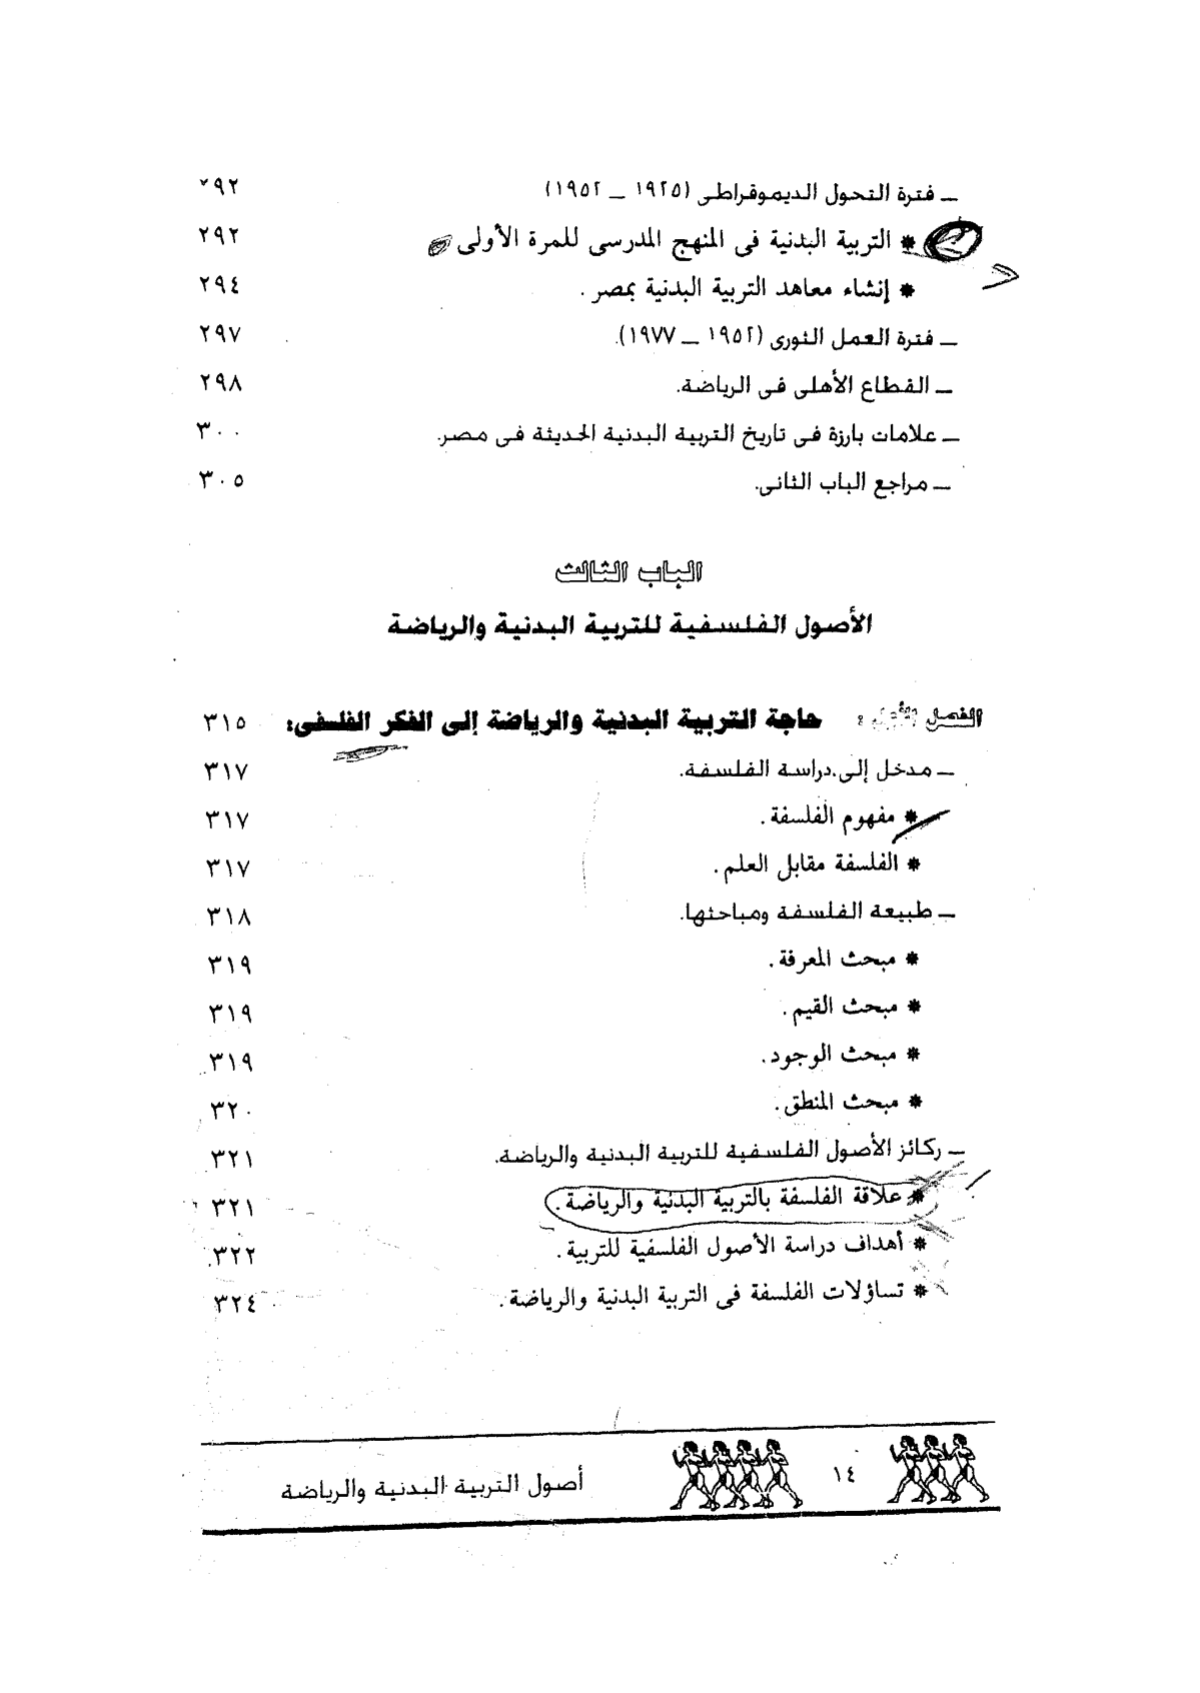 ــ فترة التحول الديموقراطى (١٩٢٥ ــ ١٩٥٢) ٢٩٢
* التربية البدنية فى المنهج المدرسى للمرة الأولى ٢٩٢
* إنشاء معاهد التربية البدنية بمصر . ٢٩٤
ــ فترة العمل الثورى (١٩٥٢ ــ ١٩٧٧). ٢٩٧
ــ القطاع الأهلى فى الرياضة. ٢٩٨
ــ علامات بارزة فى تاريخ التربية البدنية الحديثة فى مصر. ٣٠٠
ــ مراجع الباب الثانى. ٣٠٥
الباب الثالث
الأصول الفلسفية للتربية البدنية والرياضة
الفصل الأول : حاجة التربية البدنية والرياضة إلى الفكر الفلسفى: ٣١٥
ــ مدخل إلى دراسة الفلسفة. ٣١٧
* مفهوم الفلسفة . ٣١٧
* الفلسفة مقابل العلم . ٣١٧
ــ طبيعة الفلسفة ومباحثها. ٣١٨
* مبحث المعرفة . ٣١٩
* مبحث القيم . ٣١٩
* مبحث الوجود . ٣١٩
* مبحث المنطق . ٣٢٠
ــ ركائز الأصول الفلسفية للتربية البدنية والرياضة. ٣٢١
* علاقة الفلسفة بالتربية البدنية والرياضة . ٣٢١
* أهداف دراسة الأصول الفلسفية للتربية . ٣٢٢
* تساؤلات الفلسفة فى التربية البدنية والرياضة . ٣٢٤
١٤ أصول التربية البدنية والرياضة